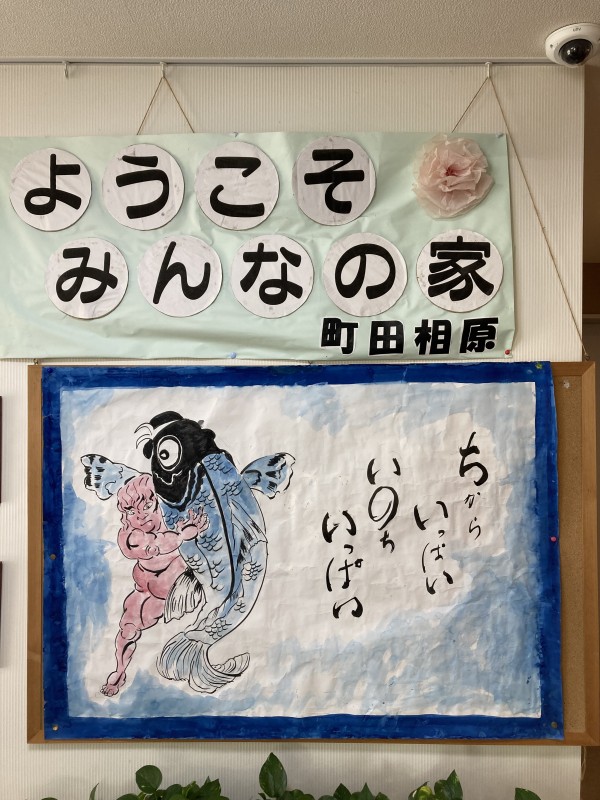 ようこそ
みんなの家
町田相原
ちから
いっぱい
いのち
いっぱい